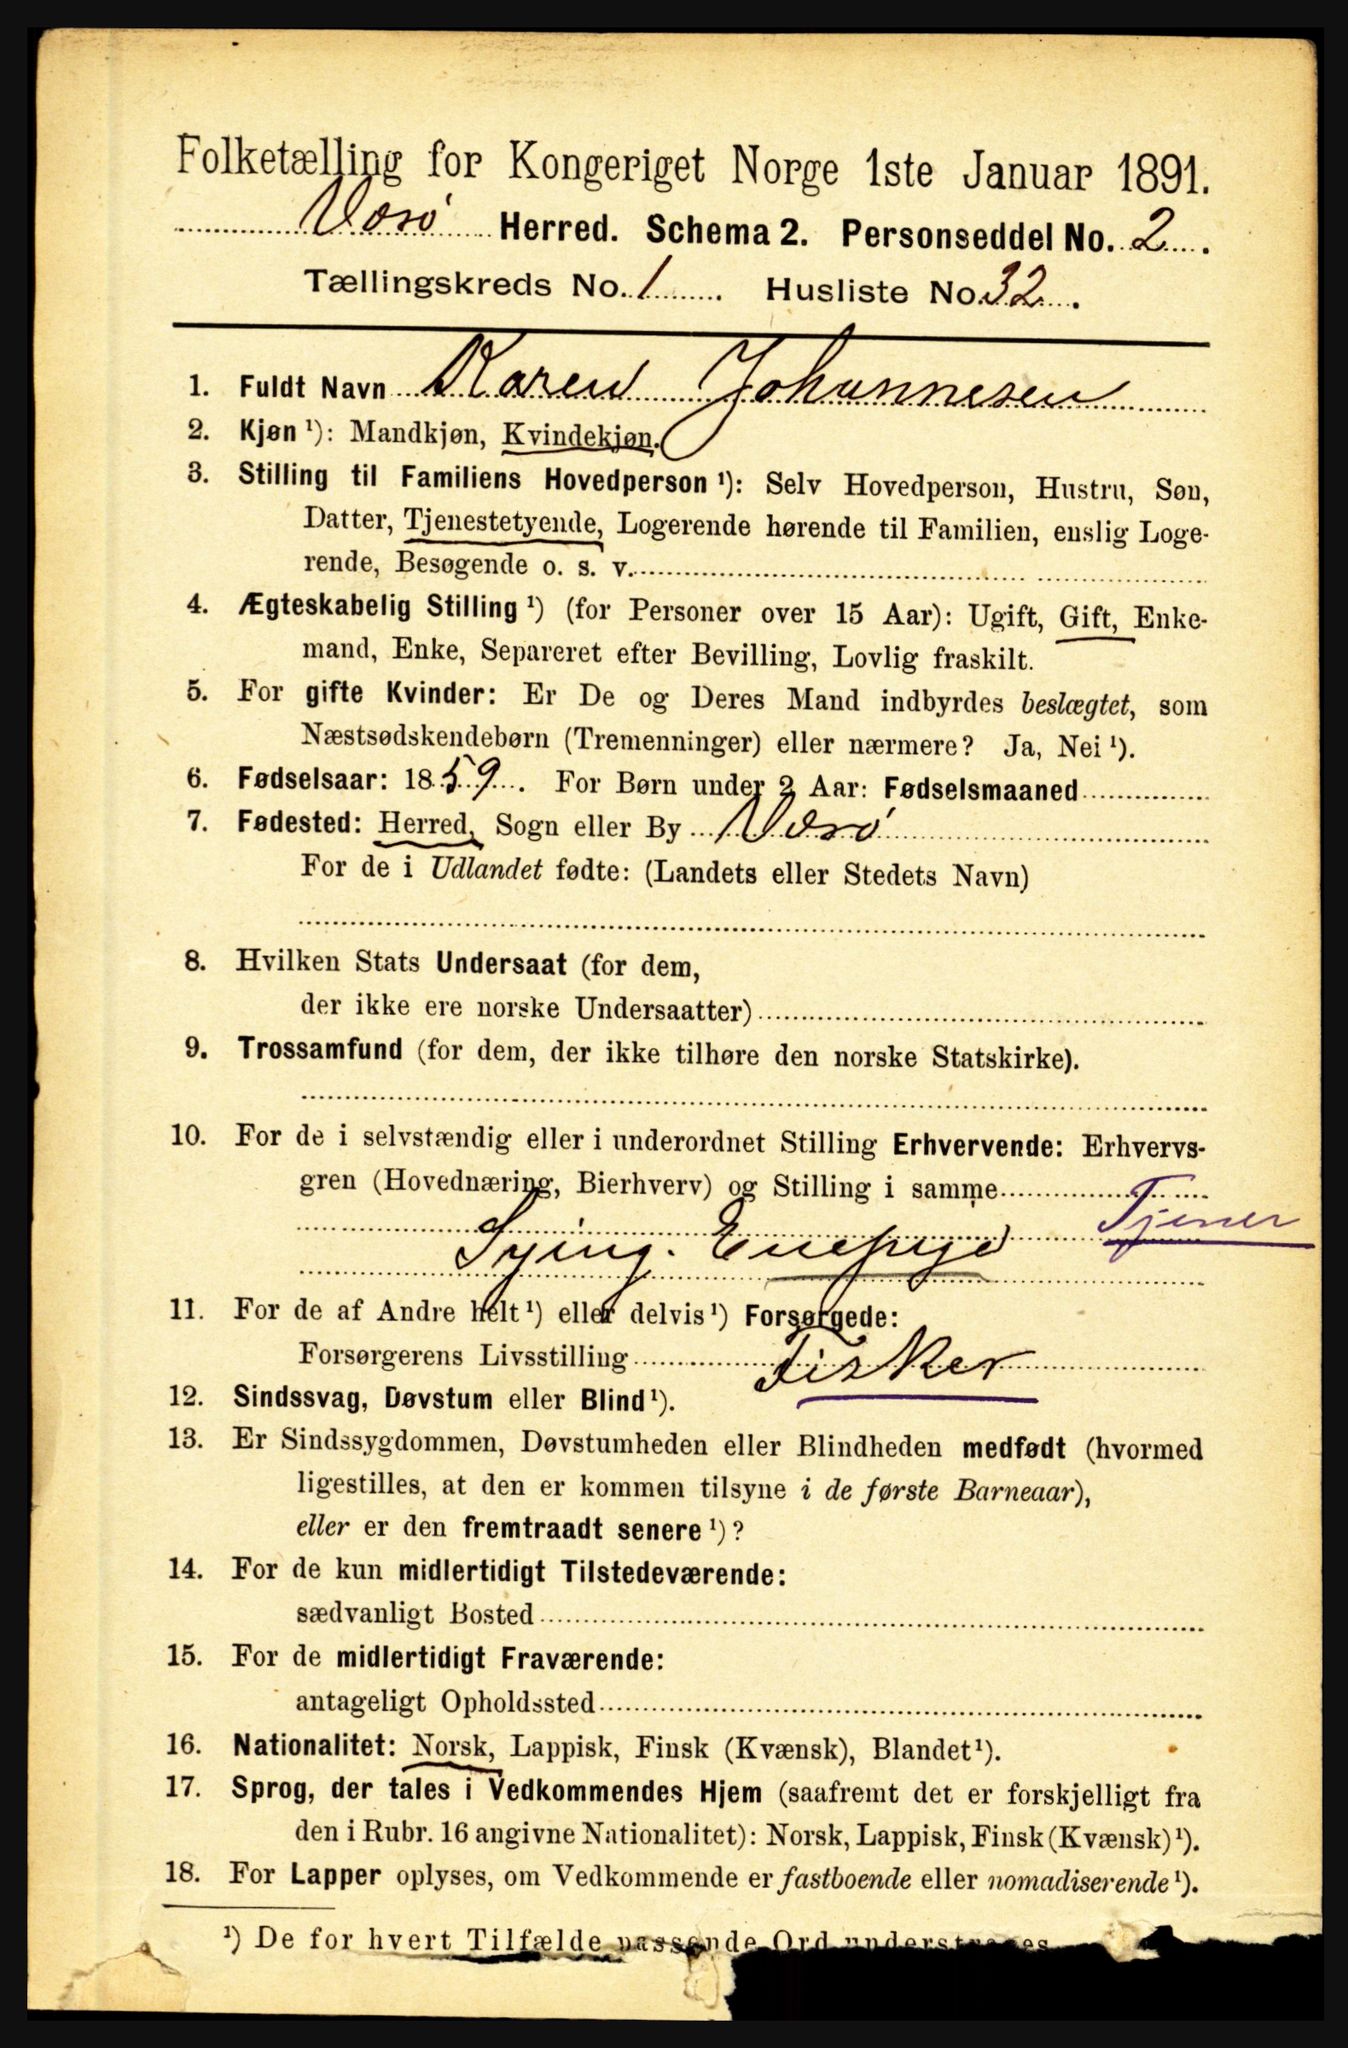 Folketælling for Kongeriget Norge 1ste Januar 1891.
Værø Herred. Schema 2. Personseddel No. 2.
Tællingskreds No. 1. Husliste No. 32.
1. Fuldt Navn Karen Johannesen
2. Kjøn ¹): Mandkjøn, Kvindekjøn.
3. Stilling til Familiens Hovedperson ¹): Selv Hovedperson, Hustru, Søn,
Datter, Tjenestetyende, Logerende hørende til Familien, enslig Loge-
rende, Besøgende o. s. v.
4. Ægteskabelig Stilling ¹) (for Personer over 15 Aar): Ugift, Gift, Enke-
mand, Enke, Separeret efter Bevilling, Lovlig fraskilt.
5. For gifte Kvinder: Er De og Deres Mand indbyrdes beslægtet, som
Næstsødskendebørn (Tremenninger) eller nærmere? Ja, Nei ¹).
6. Fødselsaar: 1859. For Børn under 2 Aar: Fødselsmaaned
7. Fødested: Herred, Sogn eller By Værø
For de i Udlandet fødte: (Landets eller Stedets Navn)
8. Hvilken Stats Undersaat (for dem,
der ikke ere norske Undersaatter)
9. Trossamfund (for dem, der ikke tilhøre den norske Statskirke).
10. For de i selvstændig eller i underordnet Stilling Erhvervende: Erhvervs-
gren (Hovednæring, Bierhverv) og Stilling i samme
Tjener
Sying. Enepige
11. For de af Andre helt ¹) eller delvis ¹) Forsørgede:
Forsørgerens Livsstilling Fisker
12. Sindssvag, Døvstum eller Blind ¹).
13. Er Sindssygdommen, Døvstumheden eller Blindheden medfødt (hvormed
ligestilles, at den er kommen tilsyne i de første Barneaar),
eller er den fremtraadt senere ¹)?
14. For de kun midlertidigt Tilstedeværende:
sædvanligt Bosted
15. For de midlertidigt Fraværende:
antageligt Opholdssted
16. Nationalitet: Norsk, Lappisk, Finsk (Kvænsk), Blandet ¹).
17. Sprog, der tales i Vedkommendes Hjem (saafremt det er forskjelligt fra
den i Rubr. 16 angivne Nationalitet): Norsk, Lappisk, Finsk (Kvænsk) ¹).
18. For Lapper oplyses, om Vedkommende er fastboende eller nomadiserende ¹).
¹) De for hvert Tilfælde passende Ord understreges